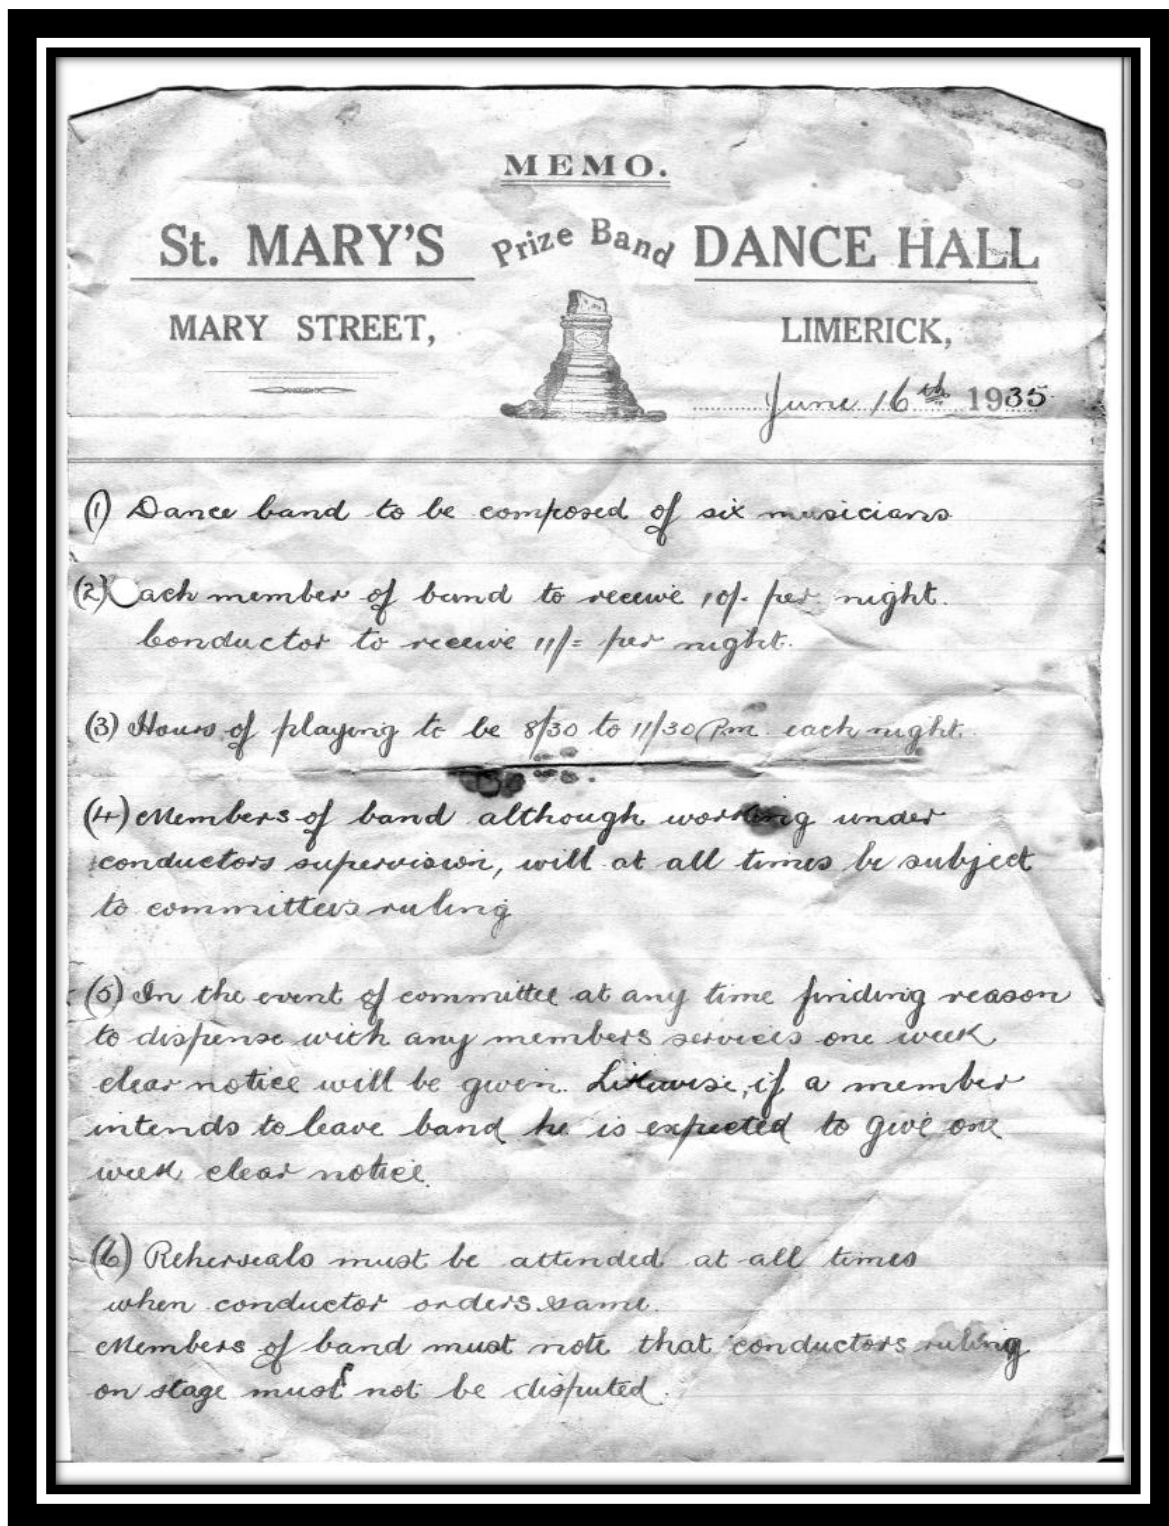 MEMO.
St. MARY'S Prize Band DANCE HALL
MARY STREET, LIMERICK,
June 16th 1935
(1) Dance band to be composed of six musicians
(2) Each member of band to receive 10/- per night.
Conductor to receive 11/= per night.
(3) Hours of playing to be 8/30 to 11/30 P.m. each night.
(4) Members of band although working under
conductors supervision, will at all times be subject
to committees ruling
(5) In the event of committee at any time finding reason
to dispense with any members services one week
clear notice will be given. Likewise, if a member
intends to leave band he is expected to give one
week clear notice.
(6) Reherseals must be attended at all times
when conductor orders same.
Members of band must note that conductors ruling
on stage must not be disputed.